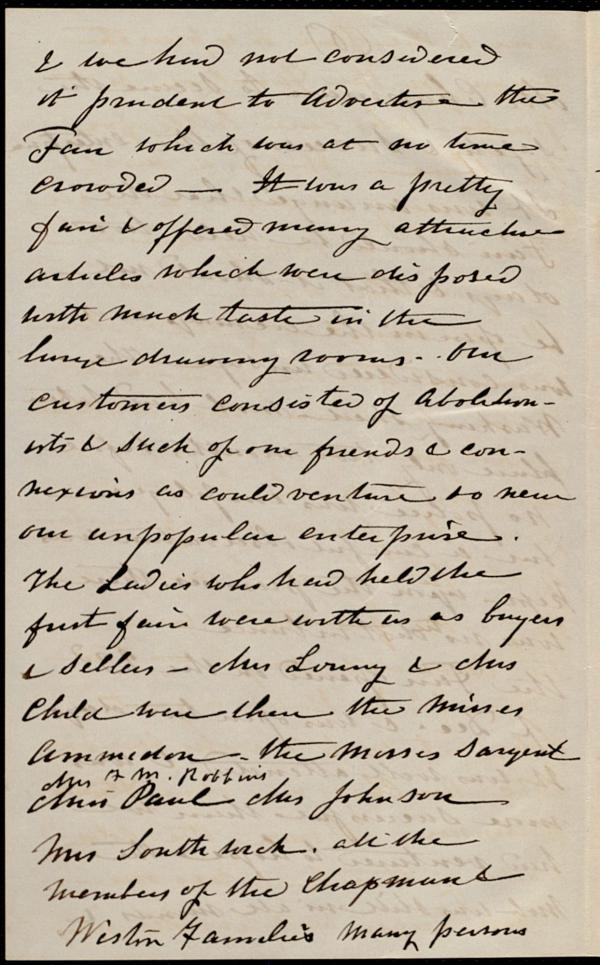 & we had not considered
it prudent to Advertise the
Fair which was at no time
crowded — It was a pretty
fair & offered many attractive
articles which were disposed
with much taste in the
large drawing rooms - Our
customers consisted of Abolition-
ists & such of our friends & con-
nexions as could venture so near
our unpopular enterprise.
The Ladies who had held the
first fair were with us as buyers
& sellers - Mrs Loring & Mrs
Child were there the Misses
Ammidon - the Misses Sargent
Mrs F. M. Robbins
Miss Paul Mrs Johnson
Mrs Southwick. all the
members of the Chapman &
Weston Families many persons